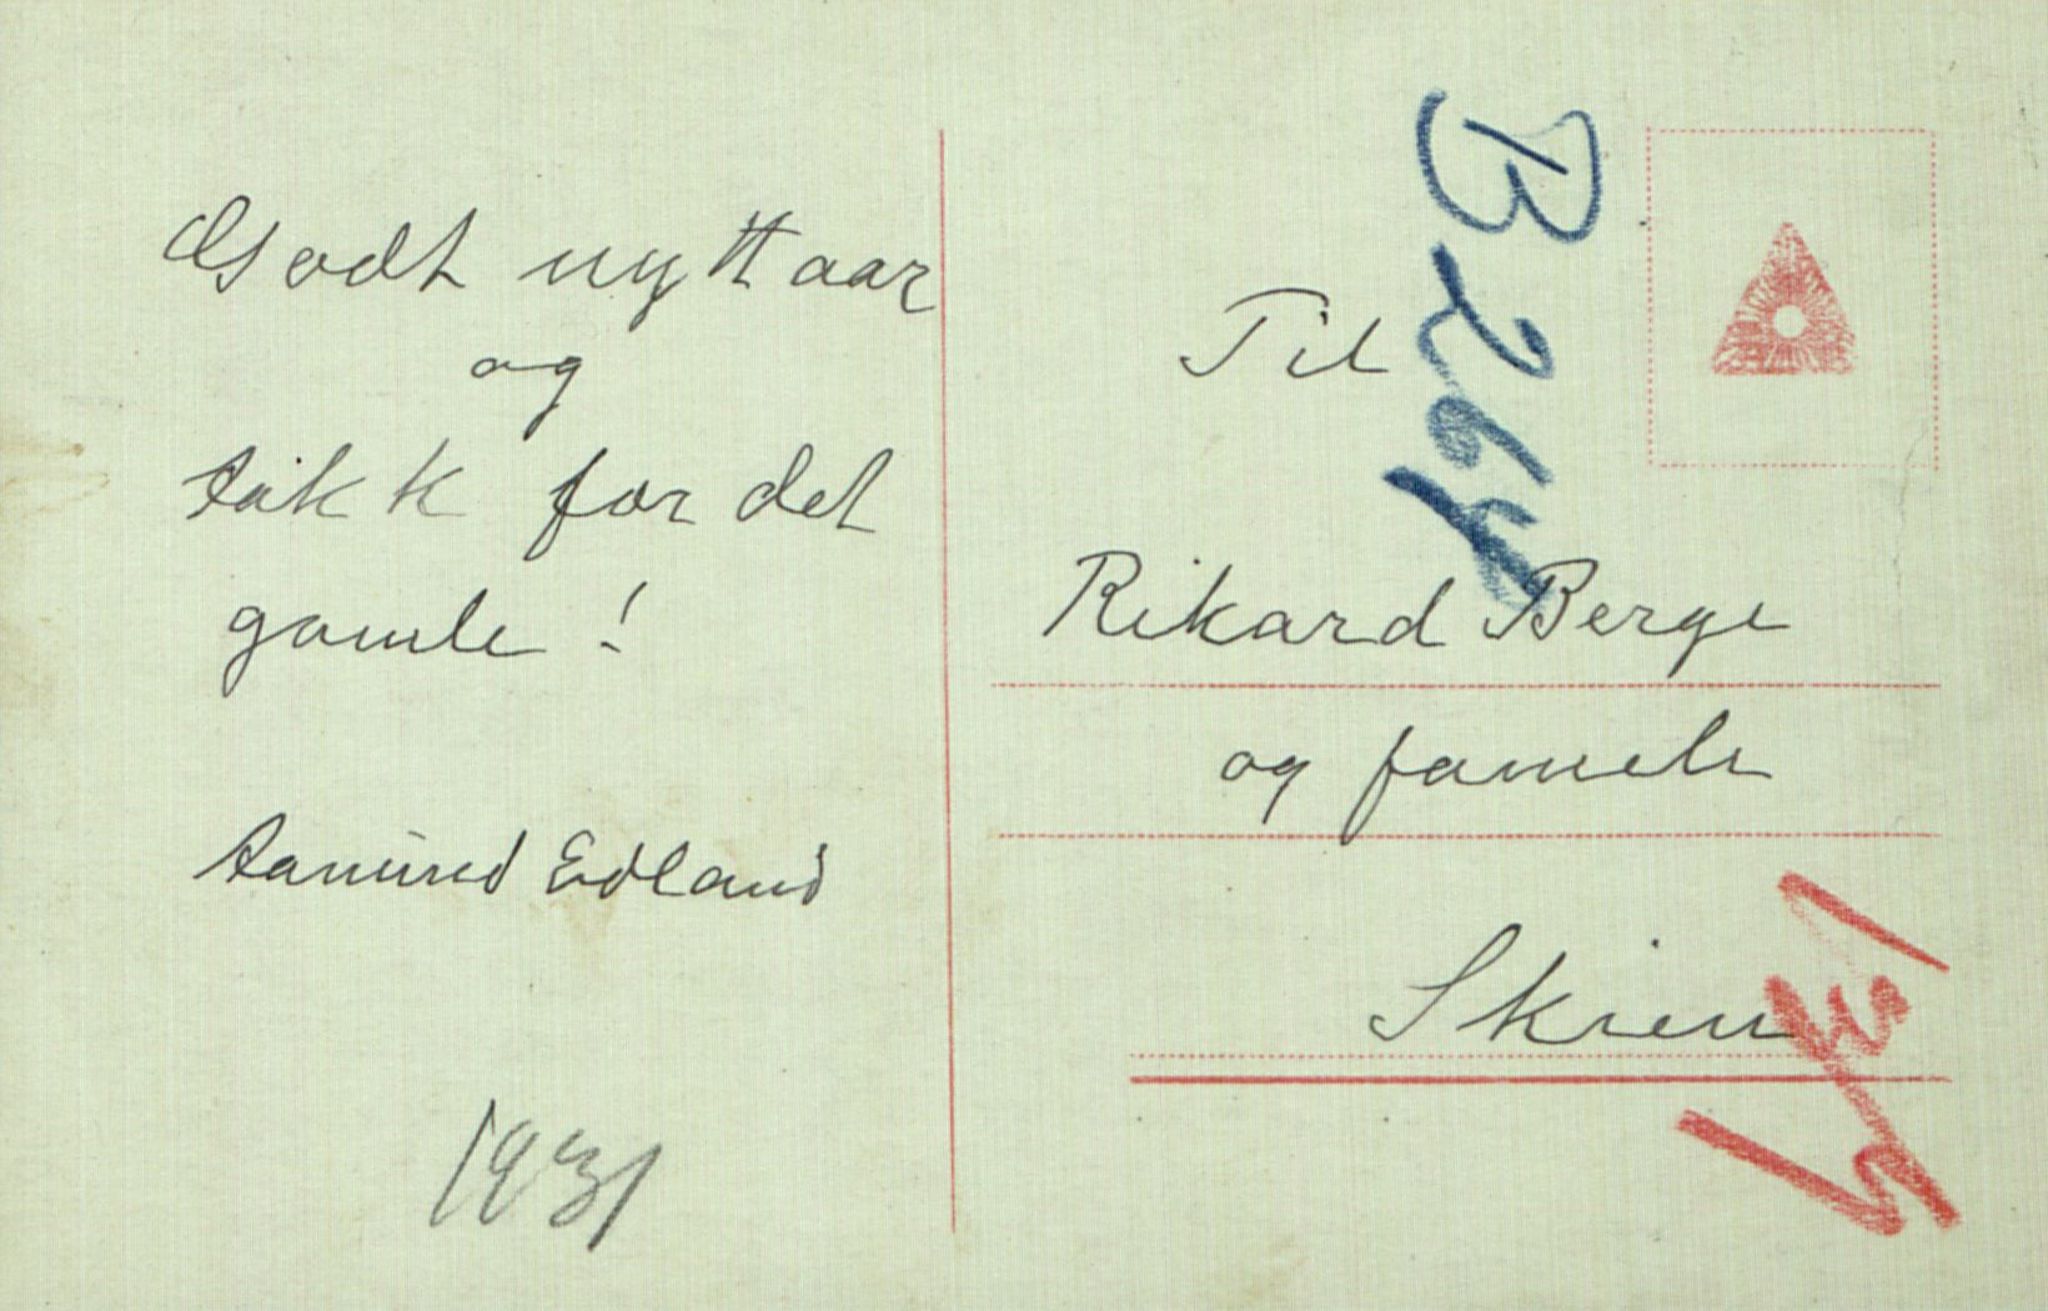 Godt nytt aar
og
takk for det
gamle!
Aamund Edland
1931
Til
Rikard Berge
og famele
Skien
B264